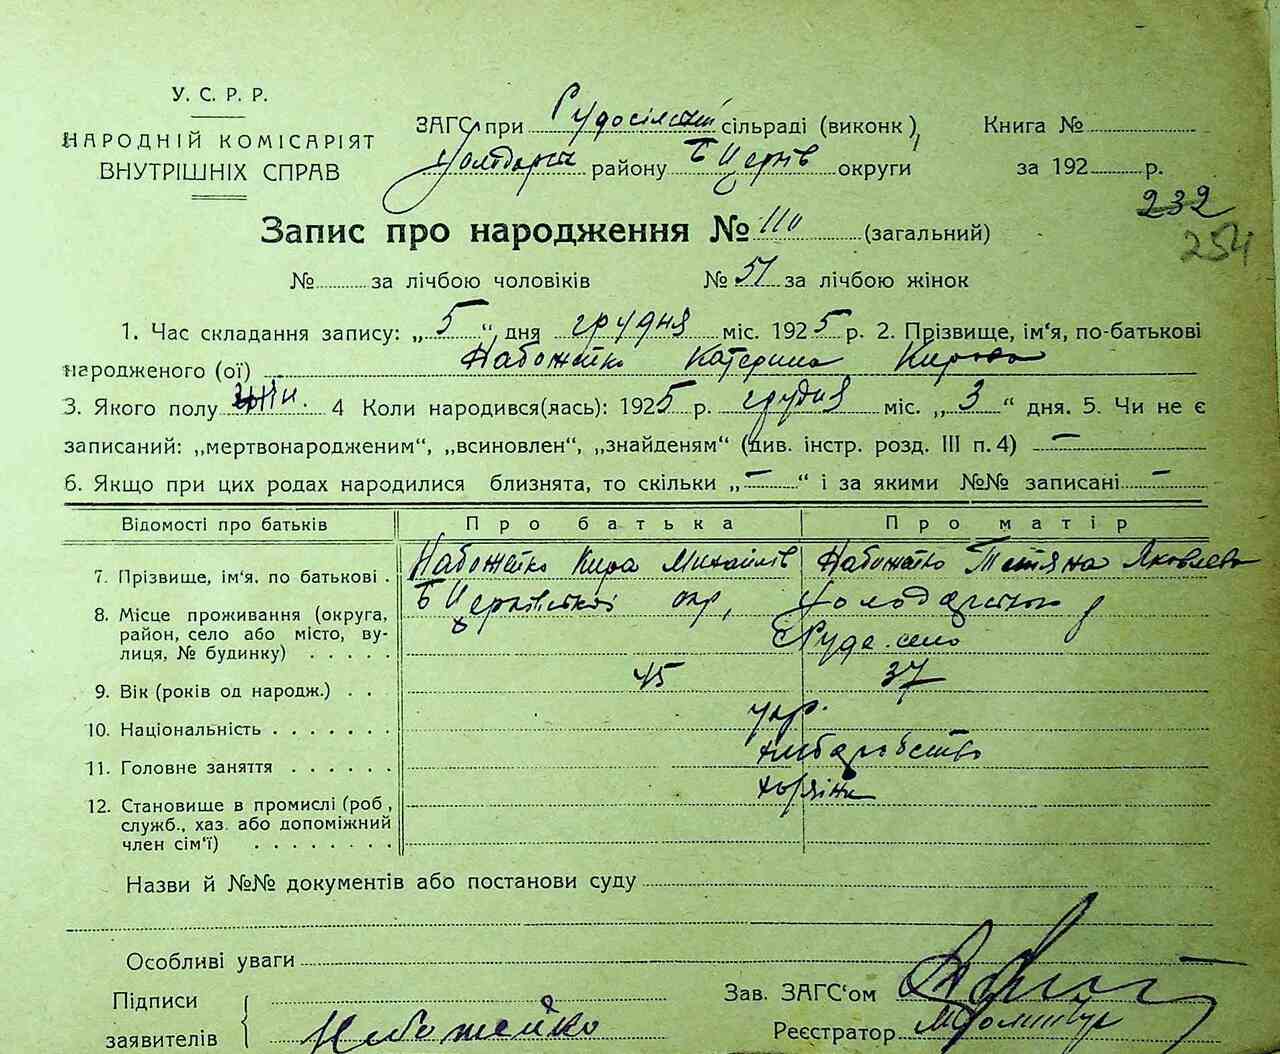 У. С. Р. Р.
НАРОДНІЙ КОМІСАРІЯТ
ВНУТРІШНІХ СПРАВ
ЗАГС при Рудосільскій сільраді (виконк),
району Б Церків округи
Книга №
за 192 р.
232
254
Запис про народження № 110 (загальний)
№ за лічбою чоловіків № 51 за лічбою жінок
1. Час складання запису: „ 5 “ дня грудня міс. 1925 р. 2. Прізвище, ім‘я, по-батькові
народженого (ої) Набожейко Катерина Кирова
3. Якого полу жін. 4 Коли народився(лась): 1925 р. грудня міс. „ 3 “ дня. 5. Чи не є
записаний: „мертвонародженим“, „всиновлен“, „знайденям“ (див. інстр. розд. III п. 4) —
6. Якщо при цих родах народилися близнята, то скільки „ — “ і за якими №№ записані —
Відомості про батьків Про батька Про матір
7. Прізвище, ім‘я. по батькові . Набожейко Кира Михайлів Набожейко Тетяна Яковлева
8. Місце проживання (округа, Б Церківскої окр, Володарского р
район, село або місто, ву- с Руде село
лиця, № будинку) . . . . .
9. Вік (років од народж.) . . 45 37
10. Національність . . . . . . . укр.
11. Головне заняття . . . . . . хліборобство
12. Становище в промислі (роб, хазяін
служб., хаз. або допоміжний
член сім‘ї) . . . . . . . .
Назви й №№ документів або постанови суду
Особливі уваги
Підписи
заявителів Набожейко
Зав. ЗАГС‘ом
Реєстратор